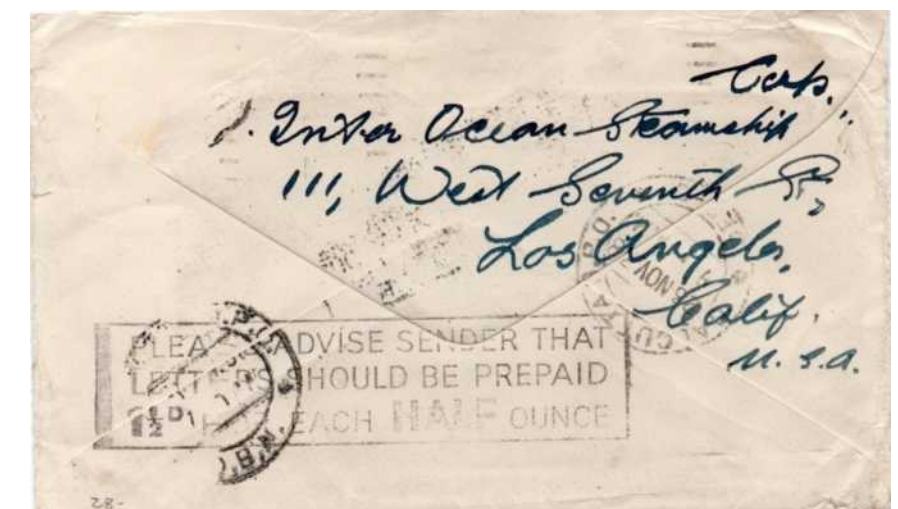 Corp.
Inter Ocean Steamship "
111, West Seventh St,
Los Angeles,
Calif.
U.S.A.
ADVISE SENDER THAT
LETTERS SHOULD BE PREPAID
1½D EACH HALF OUNCE
NOV
28-